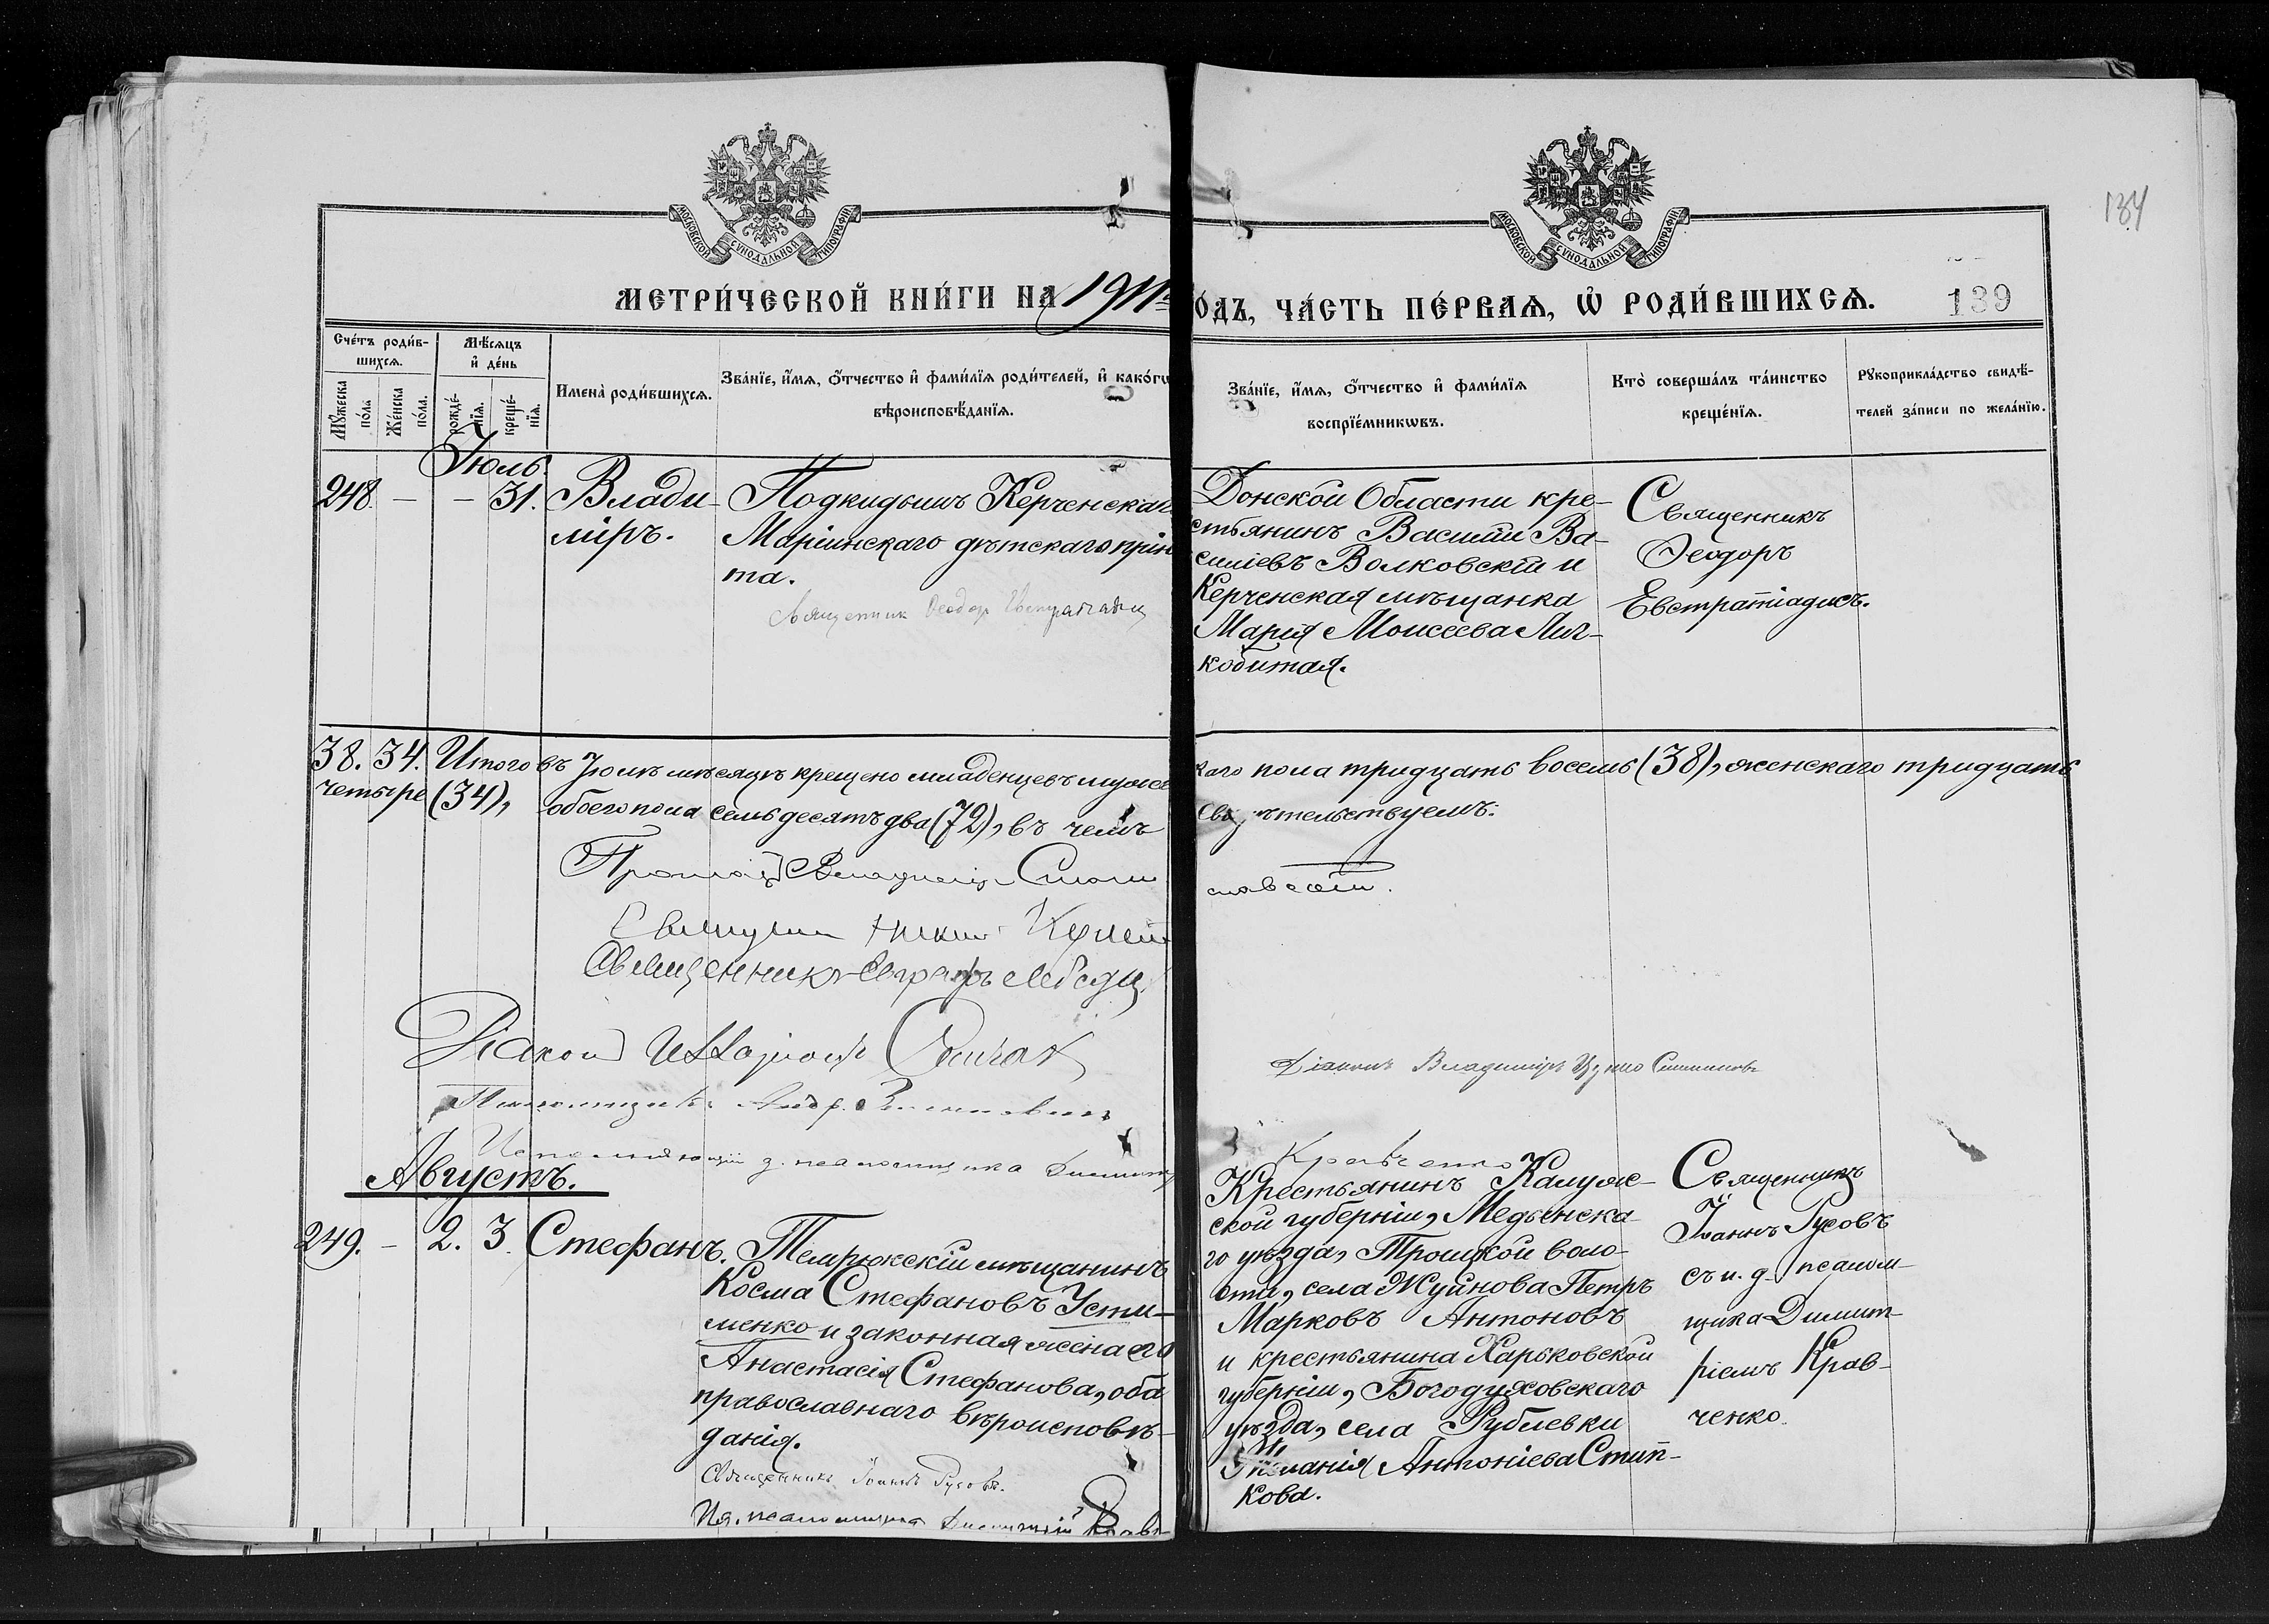 134
МОСКОВСКОЙ СУНОДАЛЬНОЙ ТИПОГРАФІИ
МОСКОВСКОЙ СУНОДАЛЬНОЙ ТИПОГРАФІИ
МЕТРИ́ЧЕСКОЙ КНИ́ГИ НА 1911
ОДЪ, ЧА́СТЬ ПЕ́РВАѦ, Ѡ҆ РОДИ́ВШИХСѦ.
139
Сче́тъ роди́в-
шихсѧ.
Мѣ́сѧцъ
и҆ де́нь
Мꙋ́жеска
по́ла
Же́нска
по́ла.
рожде́-
нїѧ.
креще́-
нїѧ.
Имена̀ роди́вшихсѧ.
Зва́нїе, и҆́мѧ, ѻ҆́тчество и҆ фами́лїѧ роди́телей, и҆ како́гѡ
вѣроисповѣ́данїѧ.
Зва́нїе, и҆́мѧ, ѻ҆́тчество и҆ фами́лїѧ
воспрїе́мникѡвъ.
Кто̀ соверша́лъ та́инство
креще́нїѧ.
Рꙋкоприкла́дство свидѣ́-
телей за́писи по жела́нїю.
Іюль.
248. — — 31. Влади-
міръ.
Подкидышъ Керченскаго
Маріинскаго дѣтскаго прію
та.
Священник Ѳеодор Евстратіади
Донской Области кре-
стьянинъ Василій Ва-
силіевъ Волковскій и
Керченская мѣщанка
Марія Моисеева
кобитая.
Священникъ
Ѳеодоръ
Евстратіадисъ.
38. 34. Итого въ Іюлѣ мѣсяцѣ крещено младенцевъ мужес
каго пола тридцать восемь (38), женскаго тридцать
четыре (34), обоего пола семьдесятъ два (72), въ чемъ
свидѣтельствуемъ:
Священникъ
Діаконъ
Діаконъ Владиміръ
Исполняющій д. псаломщика Димитрій
Кравченко
Августъ.
249. — 2. 3. Стефанъ.
Темрюкскій мѣщанинъ
Косма Стефановъ Усти-
менко и законная жена его
Анастасія Стефанова, оба
православнаго вѣроисповѣ-
данія.
Священникъ Іоаннъ Русовъ.
И.д. псаломщика Димитрій Крав
Крестьянинъ Калуж-
ской губерніи, Медынска-
го уѣзда, Троицкой воло-
сти, села Жуйнова Петръ
Марковъ Антоновъ
и крестьянина Харьковской
губерніи, Богодуховскаго
уѣзда, села Рублевки
Антоніева Стип-
кова.
Священникъ
Іоаннъ Русовъ
съ и. д. псалом-
щика Димит-
ріемъ Крав-
ченко.